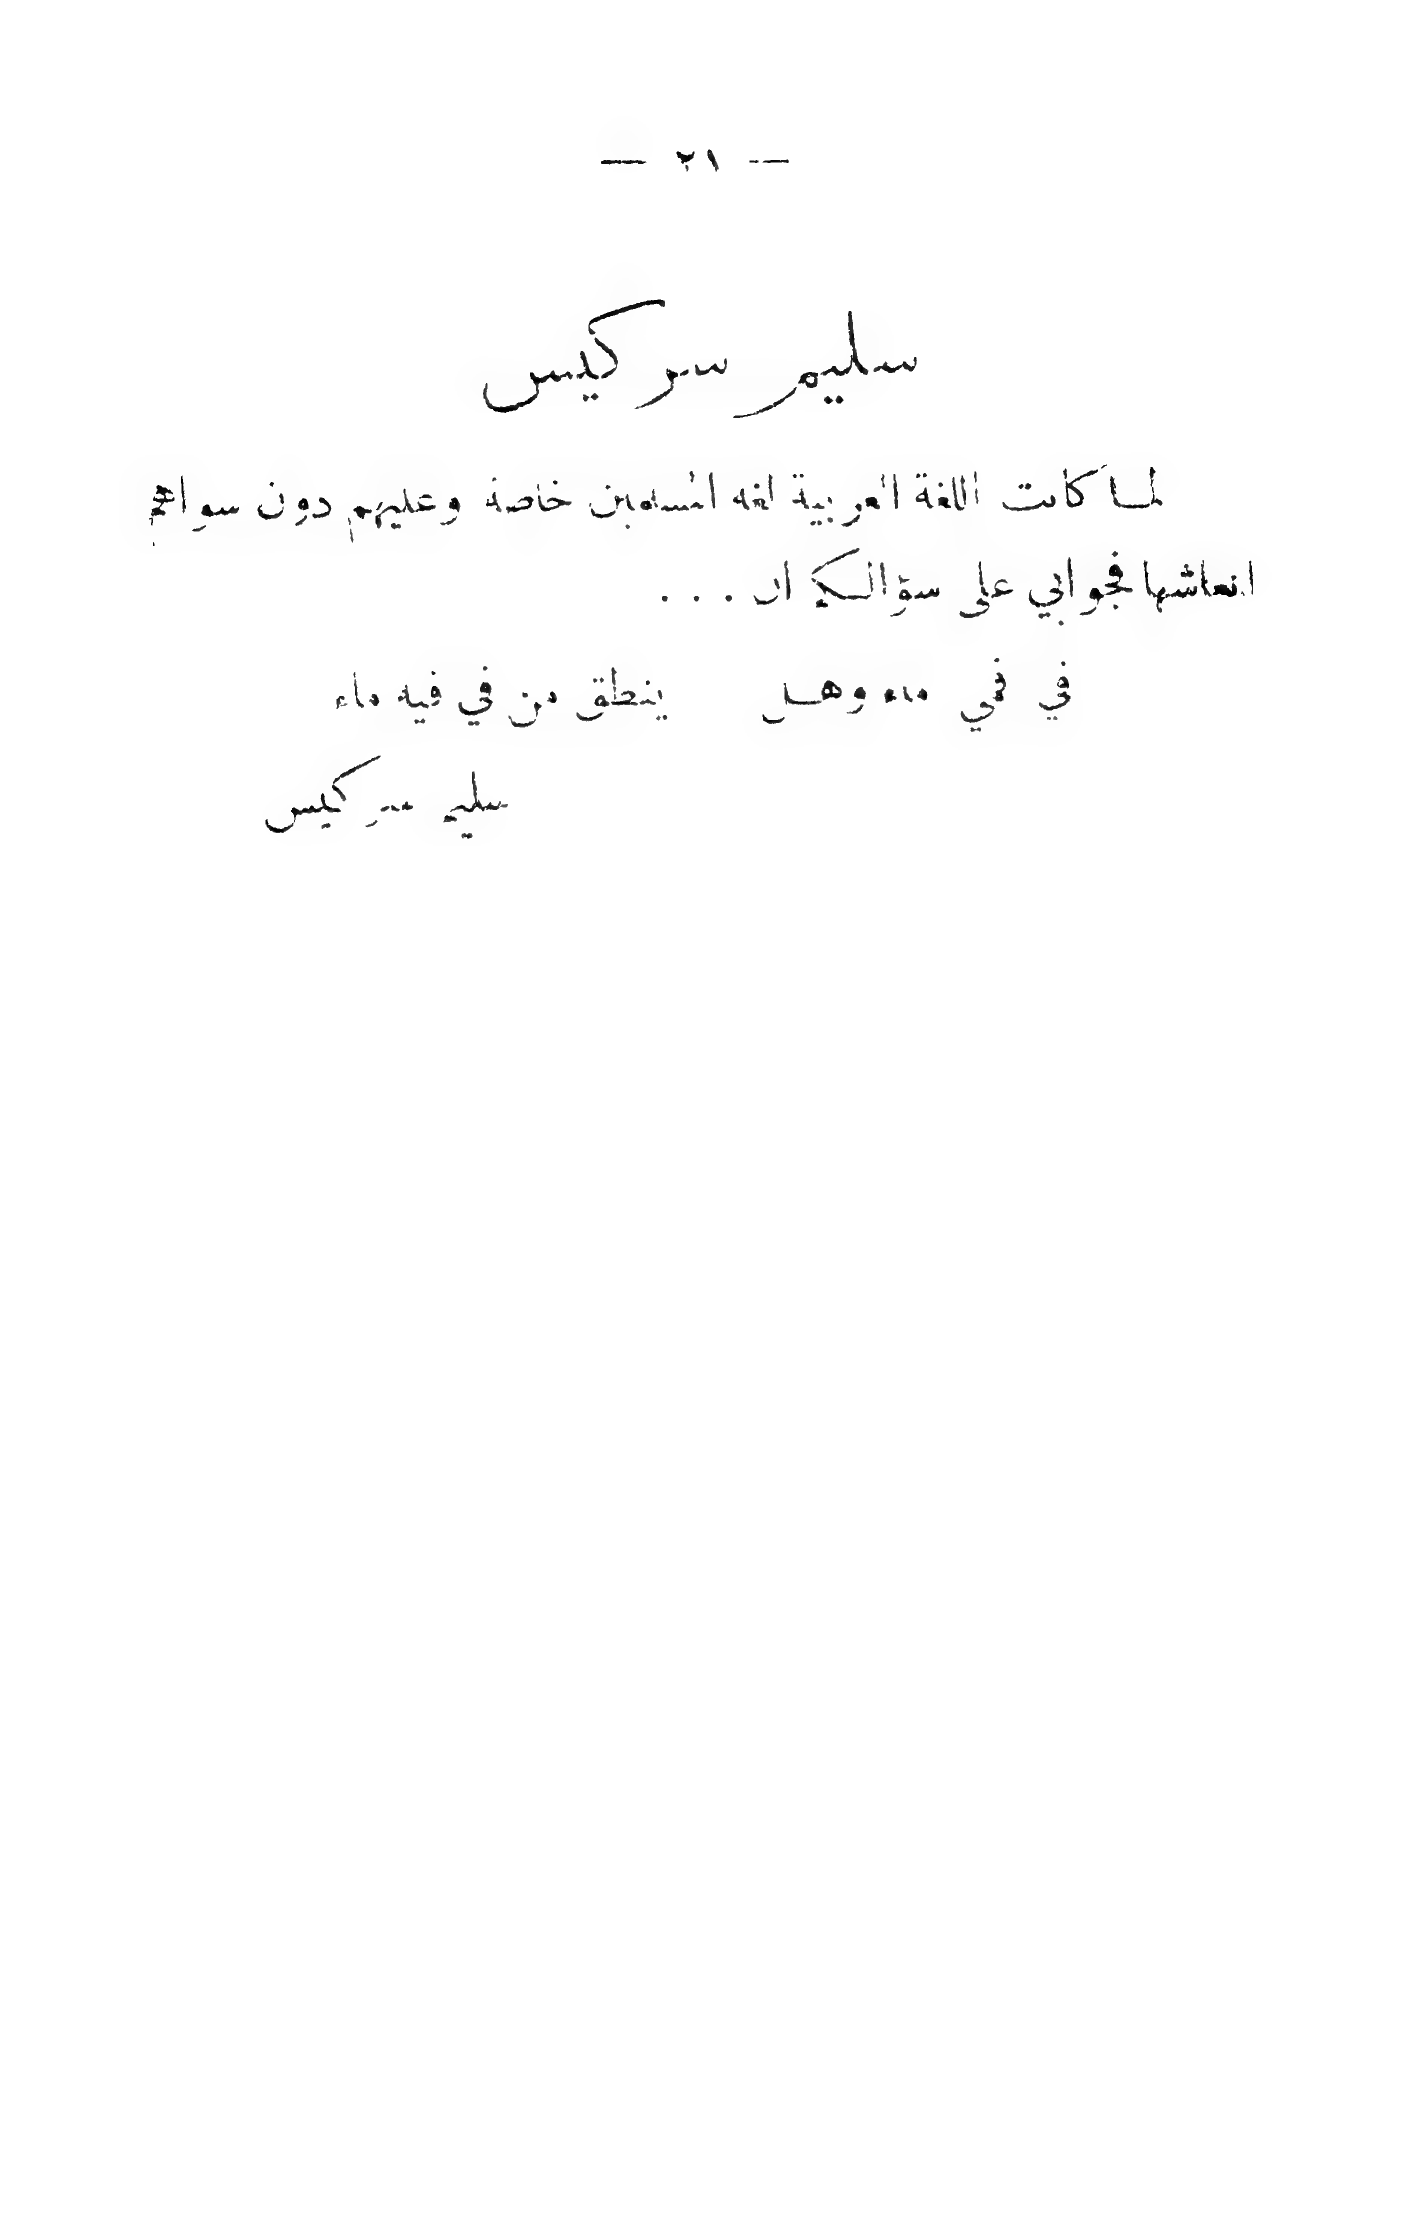 — ٢١ —
سليم سركيس
لما كانت اللغة العربية لغة المسلمين خاصة وعليهم دون سواهم
انعاشها فجوابي على سؤالكم ان . . .
في فمي ماء وهل ينطق من في فيه ماء
سليم سركيس